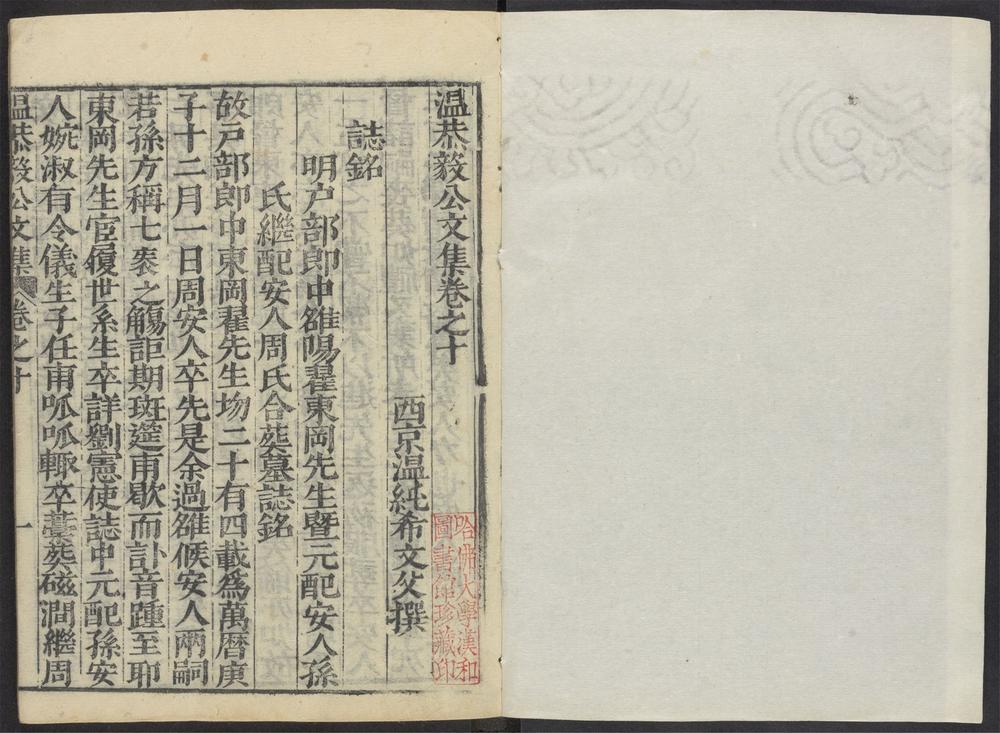 温恭毅公文集卷之十
西京温純希文父撰
誌銘
明户部郎中雒陽翟東岡先生暨元配安人孫
氏繼配安人周氏合葬墓誌銘
故戸部郎中東岡翟先生歾二十有四載爲萬曆庚
子十二月一日周安人卒先是余過雒候安人兩嗣
若孫方稱七袠之觴詎期斑筵甫歇而訃音踵至耶
東岡先生宦履世系生卒詳劉憲使誌中元配孫安
人婉淑有令儀生子任甫呱呱輙卒藁葬磁澗繼周
温恭毅公文集 卷之十 一
哈佛大學漢和
圖書館珍藏印